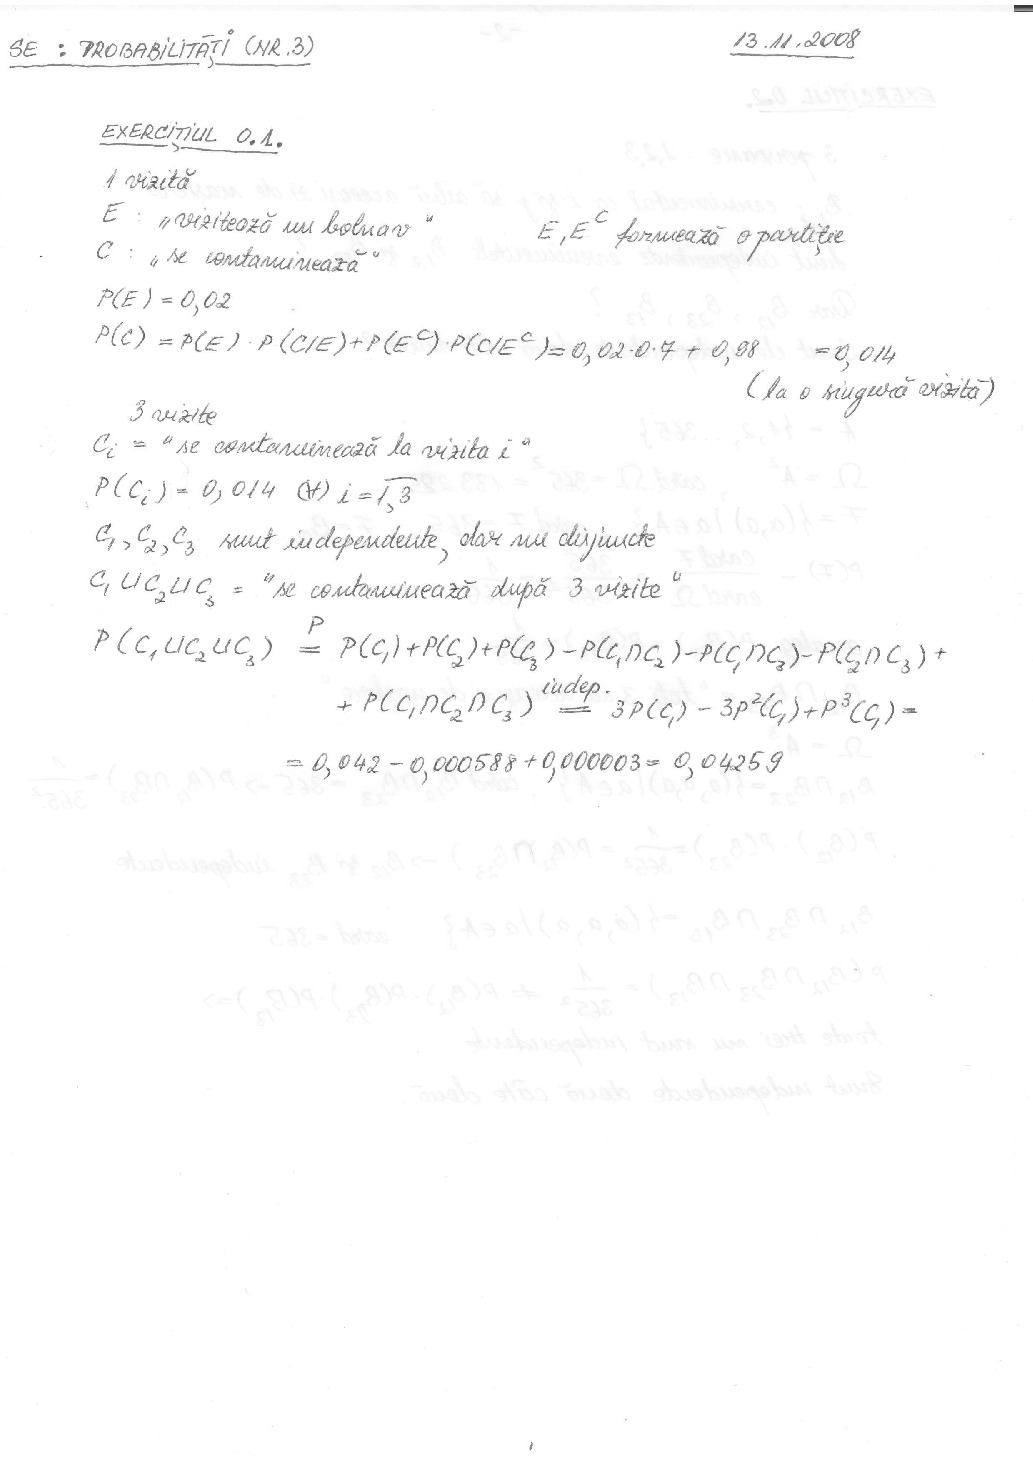 SE : PROBABILITĂȚI (NR.3)
13.11.2008
EXERCIȚIUL 0.1.
1 vizită
E : „vizitează un bolnav"
E, E^C formează o partiție
C : „se contaminează"
P(E) = 0,02
P(C) = P(E) · P(C/E) + P(E^C) · P(C/E^C) = 0,02·0,7 + 0,98 = 0,014
(la o singură vizită)
3 vizite
C_i = "se contaminează la vizita i"
P(C_i) = 0,014 (∀) i = 1,3
C_1, C_2, C_3 sunt independente, dar nu disjuncte
C_1 ∪ C_2 ∪ C_3 = "se contaminează după 3 vizite"
P(C_1 ∪ C_2 ∪ C_3) P= P(C_1) + P(C_2) + P(C_3) - P(C_1 ∩ C_2) - P(C_1 ∩ C_3) - P(C_2 ∩ C_3) +
+ P(C_1 ∩ C_2 ∩ C_3) indep. = 3P(C_1) - 3P²(C_1) + P³(C_1) =
= 0,042 - 0,000588 + 0,000003 = 0,04259